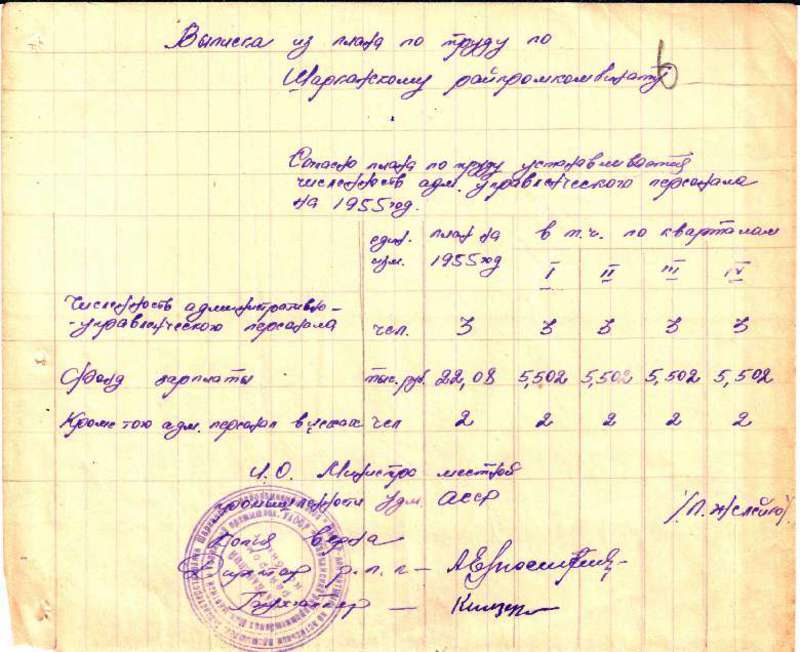 Выписка из плана по труду по
Шарканскому райпромкомбинату
Согласно плана по труду устанавливается
численность адм. управленческого персонала
на 1955 год.
един. изм. план на 1955 год в т.ч. по кварталам
I II III IV
Численность административно-
-управленческого персонала чел. 3 3 3 3 3
Фонд зарплаты тыс. руб. 22,08 5,502 5,502 5,502 5,502
Кроме того адм. персонал в цехах чел 2 2 2 2 2
И.О. Министра местной
промышленности Удм. АССР
Копия верна
Директор р.п.к. —
Бухгалтер —